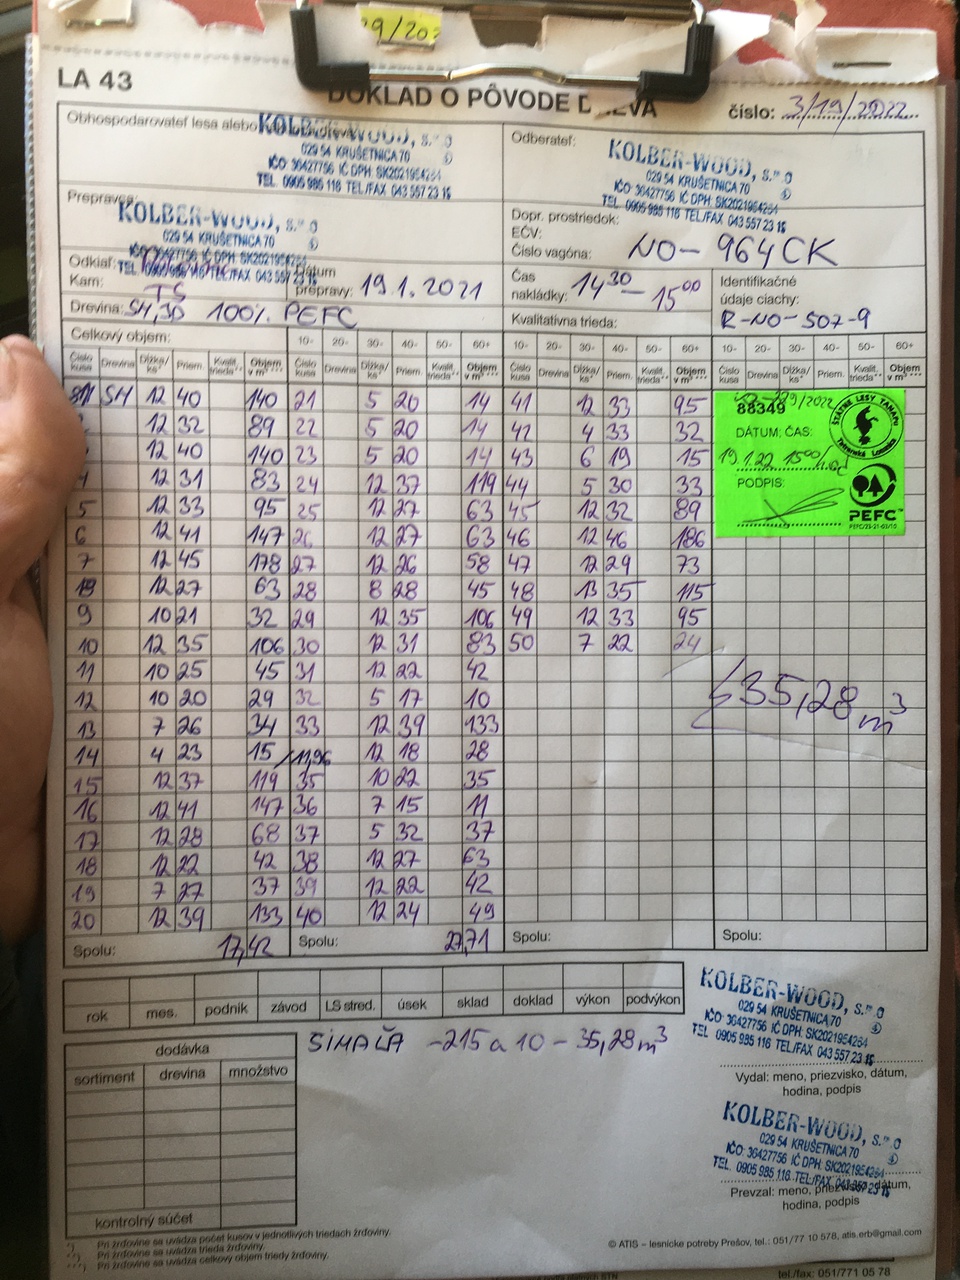 9/20
LA 43
DOKLAD O PÔVODE D EVA
číslo: 3/19/2022
Obhospodarovateľ lesa alebo
KOLBER-WOOD, s.r.o
029 54 KRUŠETNICA 70
IČO: 36427756 IČ DPH: SK2021954264
TEL. 0905 985 116 TEL/FAX 043 557 23 15
Odberateľ:
KOLBER-WOOD, s.r.o
029 54 KRUŠETNICA 70
IČO: 36427756 IČ DPH: SK2021954264
TEL. 0905 985 116 TEL/FAX 043 557 23 15
Prepravca:
KOLBER-WOOD, s.r.o
029 54 KRUŠETNICA 70
IČO: 36427756 IČ DPH: SK2021954264
TEL. 0905 985 116 TEL/FAX 043 557 23 15
Dopr. prostriedok:
EČV:
Číslo vagóna: NO-964CK
Odkiaľ:
Kam: TS
Dátum prepravy: 19.1.2021
Čas nakládky: 14³⁰-15⁰⁰
Identifikačné údaje ciachy:
R-NO-507-9
Drevina: SM, JD 100% PEFC
Kvalitatívna trieda:
Celkový objem: 10- 20- 30- 40- 50- 60+ 10- 20- 30- 40- 50- 60+ 10- 20- 30- 40- 50- 60+
Číslo kusa Drevina Dĺžka/ks* Priem. Kvalit. trieda** Objem v m³*** Číslo kusa Drevina Dĺžka/ks* Priem. Kvalit. trieda** Objem v m³*** Číslo kusa Drevina Dĺžka/ks* Priem. Kvalit. trieda** Objem v m³*** Číslo kusa Drevina Dĺžka/ks* Priem. Kvalit. trieda** Objem v m³***
SM 12 40 140 21 5 20 14 41 12 33 95
12 32 89 22 5 20 14 42 4 33 32
12 40 140 23 5 20 14 43 6 19 15
4 12 31 83 24 12 37 119 44 5 30 33
5 12 33 95 25 12 27 63 45 12 32 89
6 12 41 147 26 12 27 63 46 12 46 186
7 12 45 178 27 12 26 58 47 12 29 73
12 27 63 28 8 28 45 48 13 35 115
9 10 21 32 29 12 35 106 49 12 33 95
10 12 35 106 30 12 31 83 50 7 22 24
11 10 25 45 31 12 22 42
12 10 20 29 32 5 17 10
13 7 26 34 33 12 39 133
14 4 23 15 /11,96 12 18 28
15 12 37 119 35 10 22 35
16 12 41 147 36 7 15 11
17 12 28 68 37 5 32 37
18 12 22 42 38 12 27 63
19 7 27 37 39 12 22 42
20 12 39 133 40 12 24 49
Spolu: 17,42 Spolu: 27,71 Spolu: Spolu:
88349
DÁTUM; ČAS:
19.1.22 15⁰⁰
PODPIS:
ŠTÁTNE LESY TANAPU
Tatranská Lomnica
PEFC
Σ35,28 m³
rok mes. podnik závod LS stred. úsek sklad doklad výkon podvýkon
SIHAĽA -215 a 10 - 35,28 m³
KOLBER-WOOD, s.r.o
029 54 KRUŠETNICA 70
IČO: 36427756 IČ DPH: SK2021954264
TEL. 0905 985 116 TEL/FAX 043 557 23 15
Vydal: meno, priezvisko, dátum,
hodina, podpis
dodávka
sortiment drevina množstvo
kontrolný súčet
KOLBER-WOOD, s.r.o
029 54 KRUŠETNICA 70
IČO: 36427756 IČ DPH: SK2021954264
TEL. 0905 985 116 TEL/FAX 043 557 23 15
Prevzal: meno, priezvisko, dátum,
hodina, podpis
Pri žrďovine sa uvádza počet kusov v jednotlivých triedach žrďoviny.
Pri žrďovine sa uvádza trieda žrďoviny.
Pri žrďovine sa uvádza celkový objem triedy žrďoviny.
© ATIS – lesnícke potreby Prešov, tel.: 051/77 10 578, atis.erb@gmail.com
tel./fax: 051/771 05 78